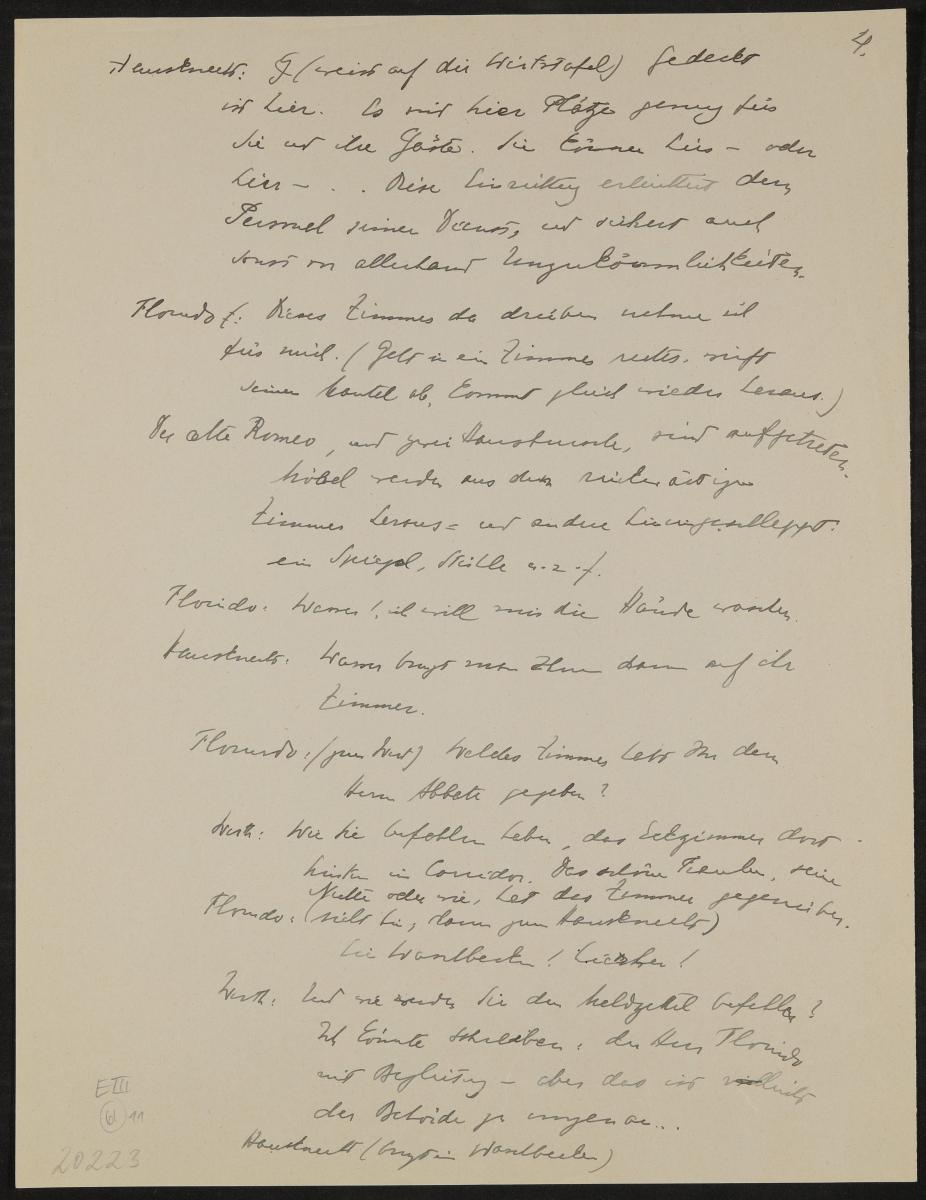 4.
Hausknecht: (weist auf die Wirtstafel) Gedeckt
ist hier. Es sind hier Plätze genug für
Sie und ihre Gäste. Sie können hier – oder
hier – . . Diese Einrichtung erleichtert dem
Personal seinen Dienst, und sichert auch
sonst vor allerhand Unzukömmlichkeiten.
Florindo: Dieses Zimmer da drüben nehme ich
für mich. (Geht in ein Zimmer rechts. wirft
seinen Mantel ab, kommt gleich wieder heraus.)
Der alte Romeo, und zwei Hausbursche, sind aufgetreten.
Möbel werden aus dem rückwärtigen
Zimmer heraus- und andere hineingeschleppt:
ein Spiegel, Stühle u.s.f.
Florindo: Wasser! ich will mir die Hände waschen.
Hausknecht: Wasser bringt man Ihnen dann auf ihr
Zimmer.
Florindo: (zum Wirt) Welches Zimmer habt Ihr dem
Herrn Abbate gegeben?
Wirth: Wie Sie befohlen haben, das Eckzimmer dort
hinten im Corridor. Das schöne Fräulein, seine
Nichte oder wie, hat das Zimmer gegenüber.
Florindo: (sieht hin, dann zum Hausknecht)
Ein Waschbecken! Tücher!
Wirth: Und wie werden Sie den Meldzettel befehlen?
Ich könnte schreiben: der Herr Florindo
mit Begleitung – aber das ist vielleicht
der Behörde zu ungenau...
Hausknecht (bringt ein Waschbecken)
E III
61 11
20223